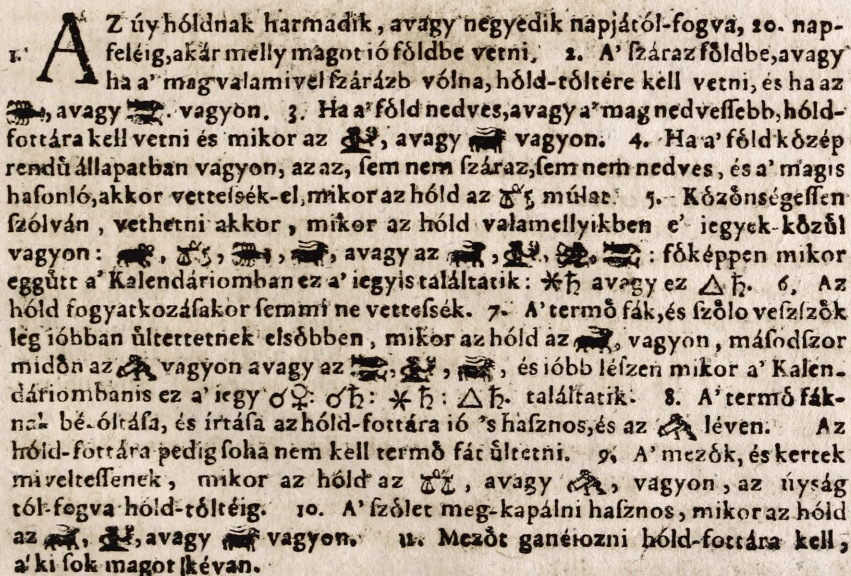 AZ úy hóldnak harmadik, avagy negyedik napjától-fogva, 20. nap-
1. feléig, akár melly magot ió főldbe vetni. 2. A' ſzáraz főldbe, avagy
ha a' mag valamivel ſzárázb vólna, hóld-tőltére kell vetni, és ha az
♏, avagy ♓. vagyon. 3. Ha a' főld nedves, avagy a' mag nedveſſebb, hóld-
fottára kell vetni és mikor az , avagy vagyon. 4. Ha a' főld kőzép
rendű állapatban vagyon, azaz, ſem nem ſzáraz, ſem nem nedves, és a' magis
haſonló, akkor vetteſsék-el, mikor az hóld az múlat. 5. Kőzőnségeſſen
ſzólván, vethetni akkor, mikor az hóld valamellyikben e' iegyek-kőzűl
vagyon: , , , , avagy az , , , : főképpen mikor
eggűtt a' Kalendáriomban ez a' iegyis találtatik: ⚹♄ avagy ez △♄. 6. Az
hóld fogyatkozásakor ſemmi ne vetteſsék. 7. A' termő fák, és ſzőlo veſzſzők
leg ióbban űltettetnek elsőbben, mikor az hóld az , vagyon, máſodſzor
midőn az vagyon avagy az , , , és ióbb léſzen mikor a' Kalen-
dáriombanis ez a' iegy ♂♀: ♂♄: ⚹♄: △♄. találtatik. 8. A' termő fák-
nak bé-óltáſa, és írtáſa az hóld-fottára ió 's haſznos, és az léven. Az
hóld-fottára pedig ſoha nem kell termő fát űltetni. 9. A' mezők, és kertek
miveltetſſenek, mikor az hóld az , avagy , vagyon, az úyság
tól-fogva hóld-tőltéig. 10. A' ſzőlet meg-kapálni haſznos, mikor az hóld
az , , avagy vagyon. 11. Mezőt ganéiozni hóld-fottára kell,
a' ki ſok magot kéván.